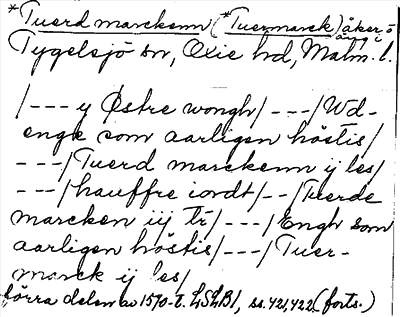 *Tuerd marckenn (*Tuermarck) åker i
Tygelsjö sn, Oxie hd, Malm. l.
/--- y Østre wongh/ --- /Wd-
engk som aarligen höstis/
---/Tuerd marckenn ij les/
---/hauffre iordt/--/Tuerde
marcken iij tr/ ---/Engh som
aarligen höstis/---/Tuer-
marck ij les/
förra delen av 1570-t. LSLB1, ss. 421, 422. (forts.)